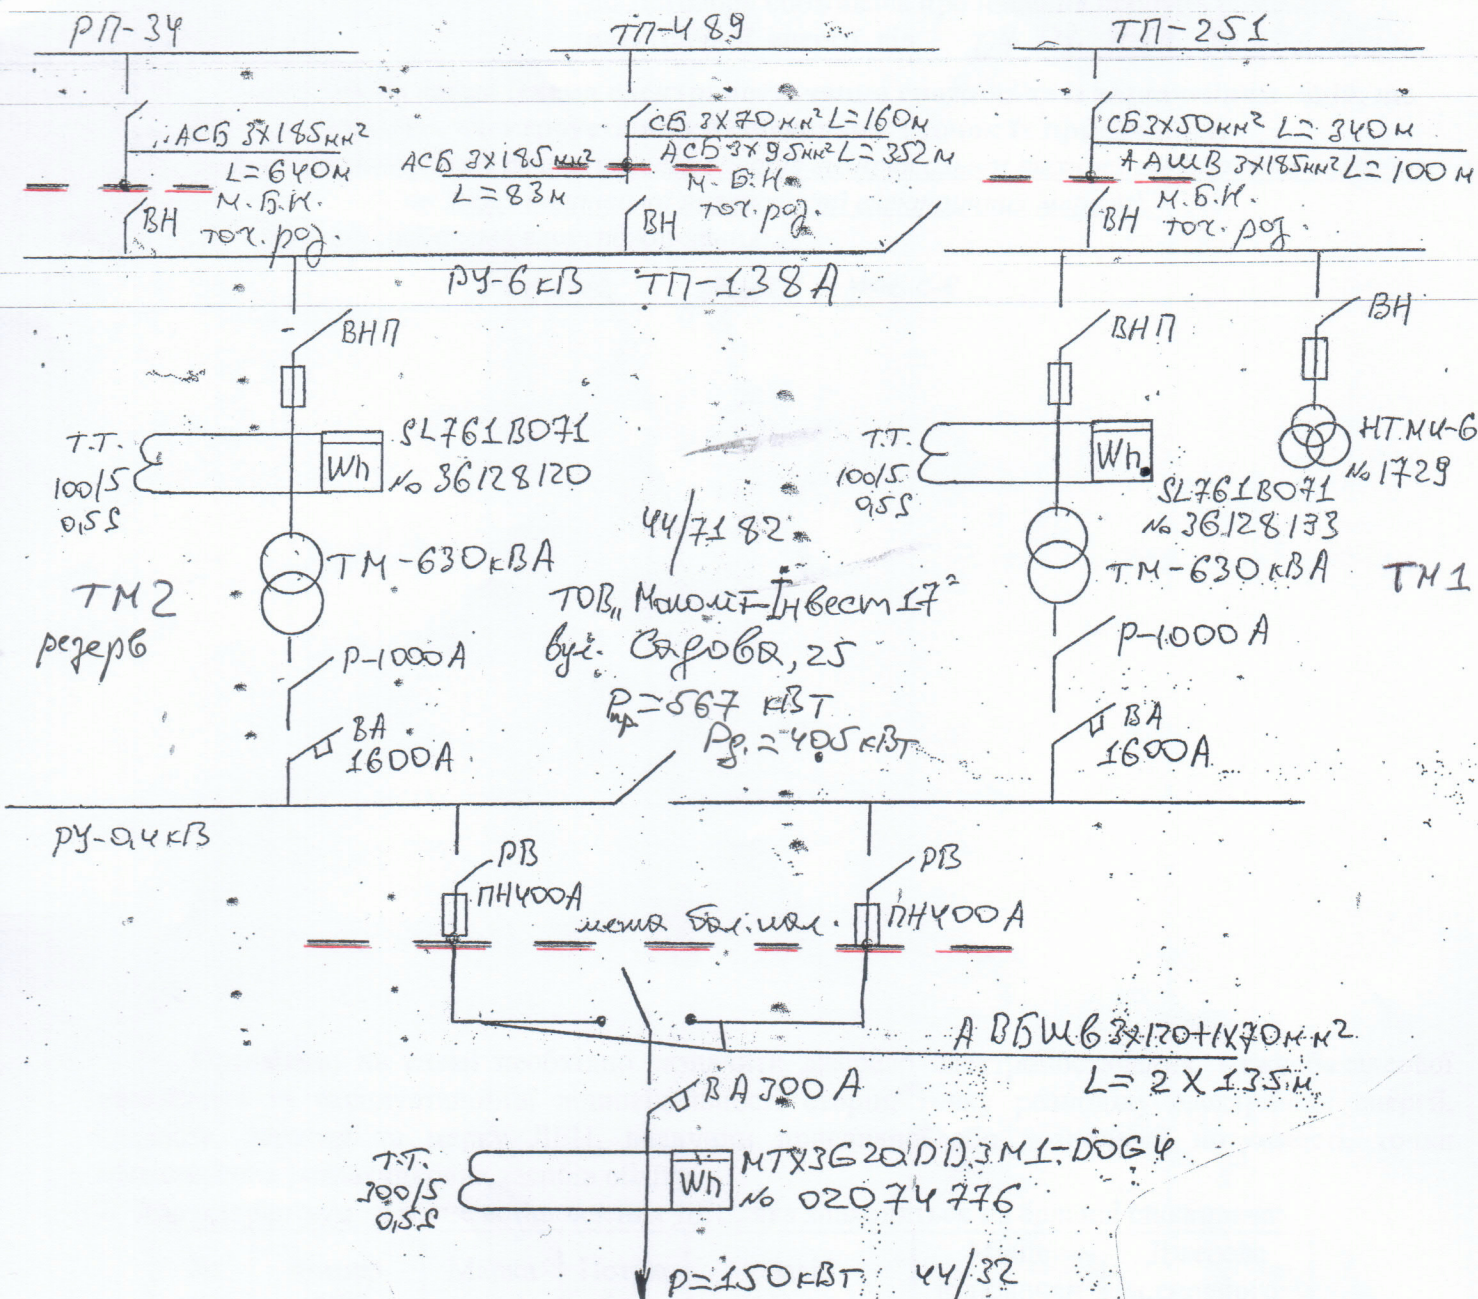 РП-34
ТП-489
ТП-251
АСБ 3х185мм²
L=640м
м.б.н.
точ. роз
ВН
СБ 3х70мм² L=160м
АСБ 3х95мм² L=352м
АСБ 3х185мм²
L=83м
м.б.н.
точ. роз.
ВН
СБ 3х50мм² L=340м
ААШВ 3х185мм² L=100м
м.б.н.
точ. роз.
ВН
РУ-6кВ ТП-138А
ВНП
ВНП
ВН
Т.Т.
100/5
0,5S
Wh
SL761B071
No 36128120
Т.Т.
100/5
0,5S
Wh
SL761B071
No 36128133
НТМИ-6
No 1729
44/7182
ТМ-630кВА
ТМ-630кВА
ТМ2
резерв
ТМ1
ТОВ "Моноліт-Інвест 17"
вул. Садова, 25
Рпр=567 кВт
Рд.=405кВт
Р-1000А
ВА
1600А
Р-1000А
ВА
1600А
РУ-0,4кВ
РВ
ПН400А
РВ
ПН400А
межа бал. нал.
АВБШв 3х120+1х70мм²
L=2х135м
ВА300А
Т.Т.
300/5
0,5S
Wh
MTX3G20.DD.3M1-DOG4
No 02074776
Р=150кВт 44/32